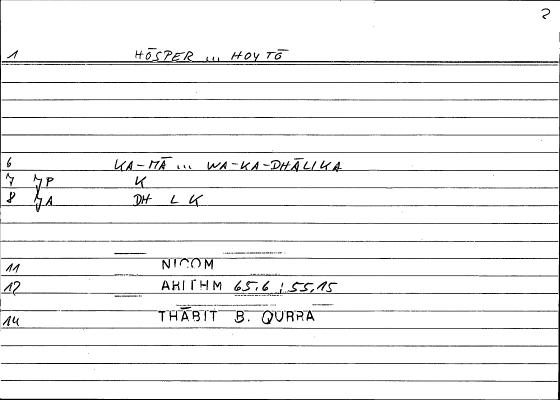 2
1 HŌSPER ... HOYTŌ
6 KA-MĀ ... WA-KA-DHĀLIKA
7 P K
8 A DH L K
11 NICOM
12 ARITHM 65,6 ; 55,15
14 THĀBIT B. QURRA